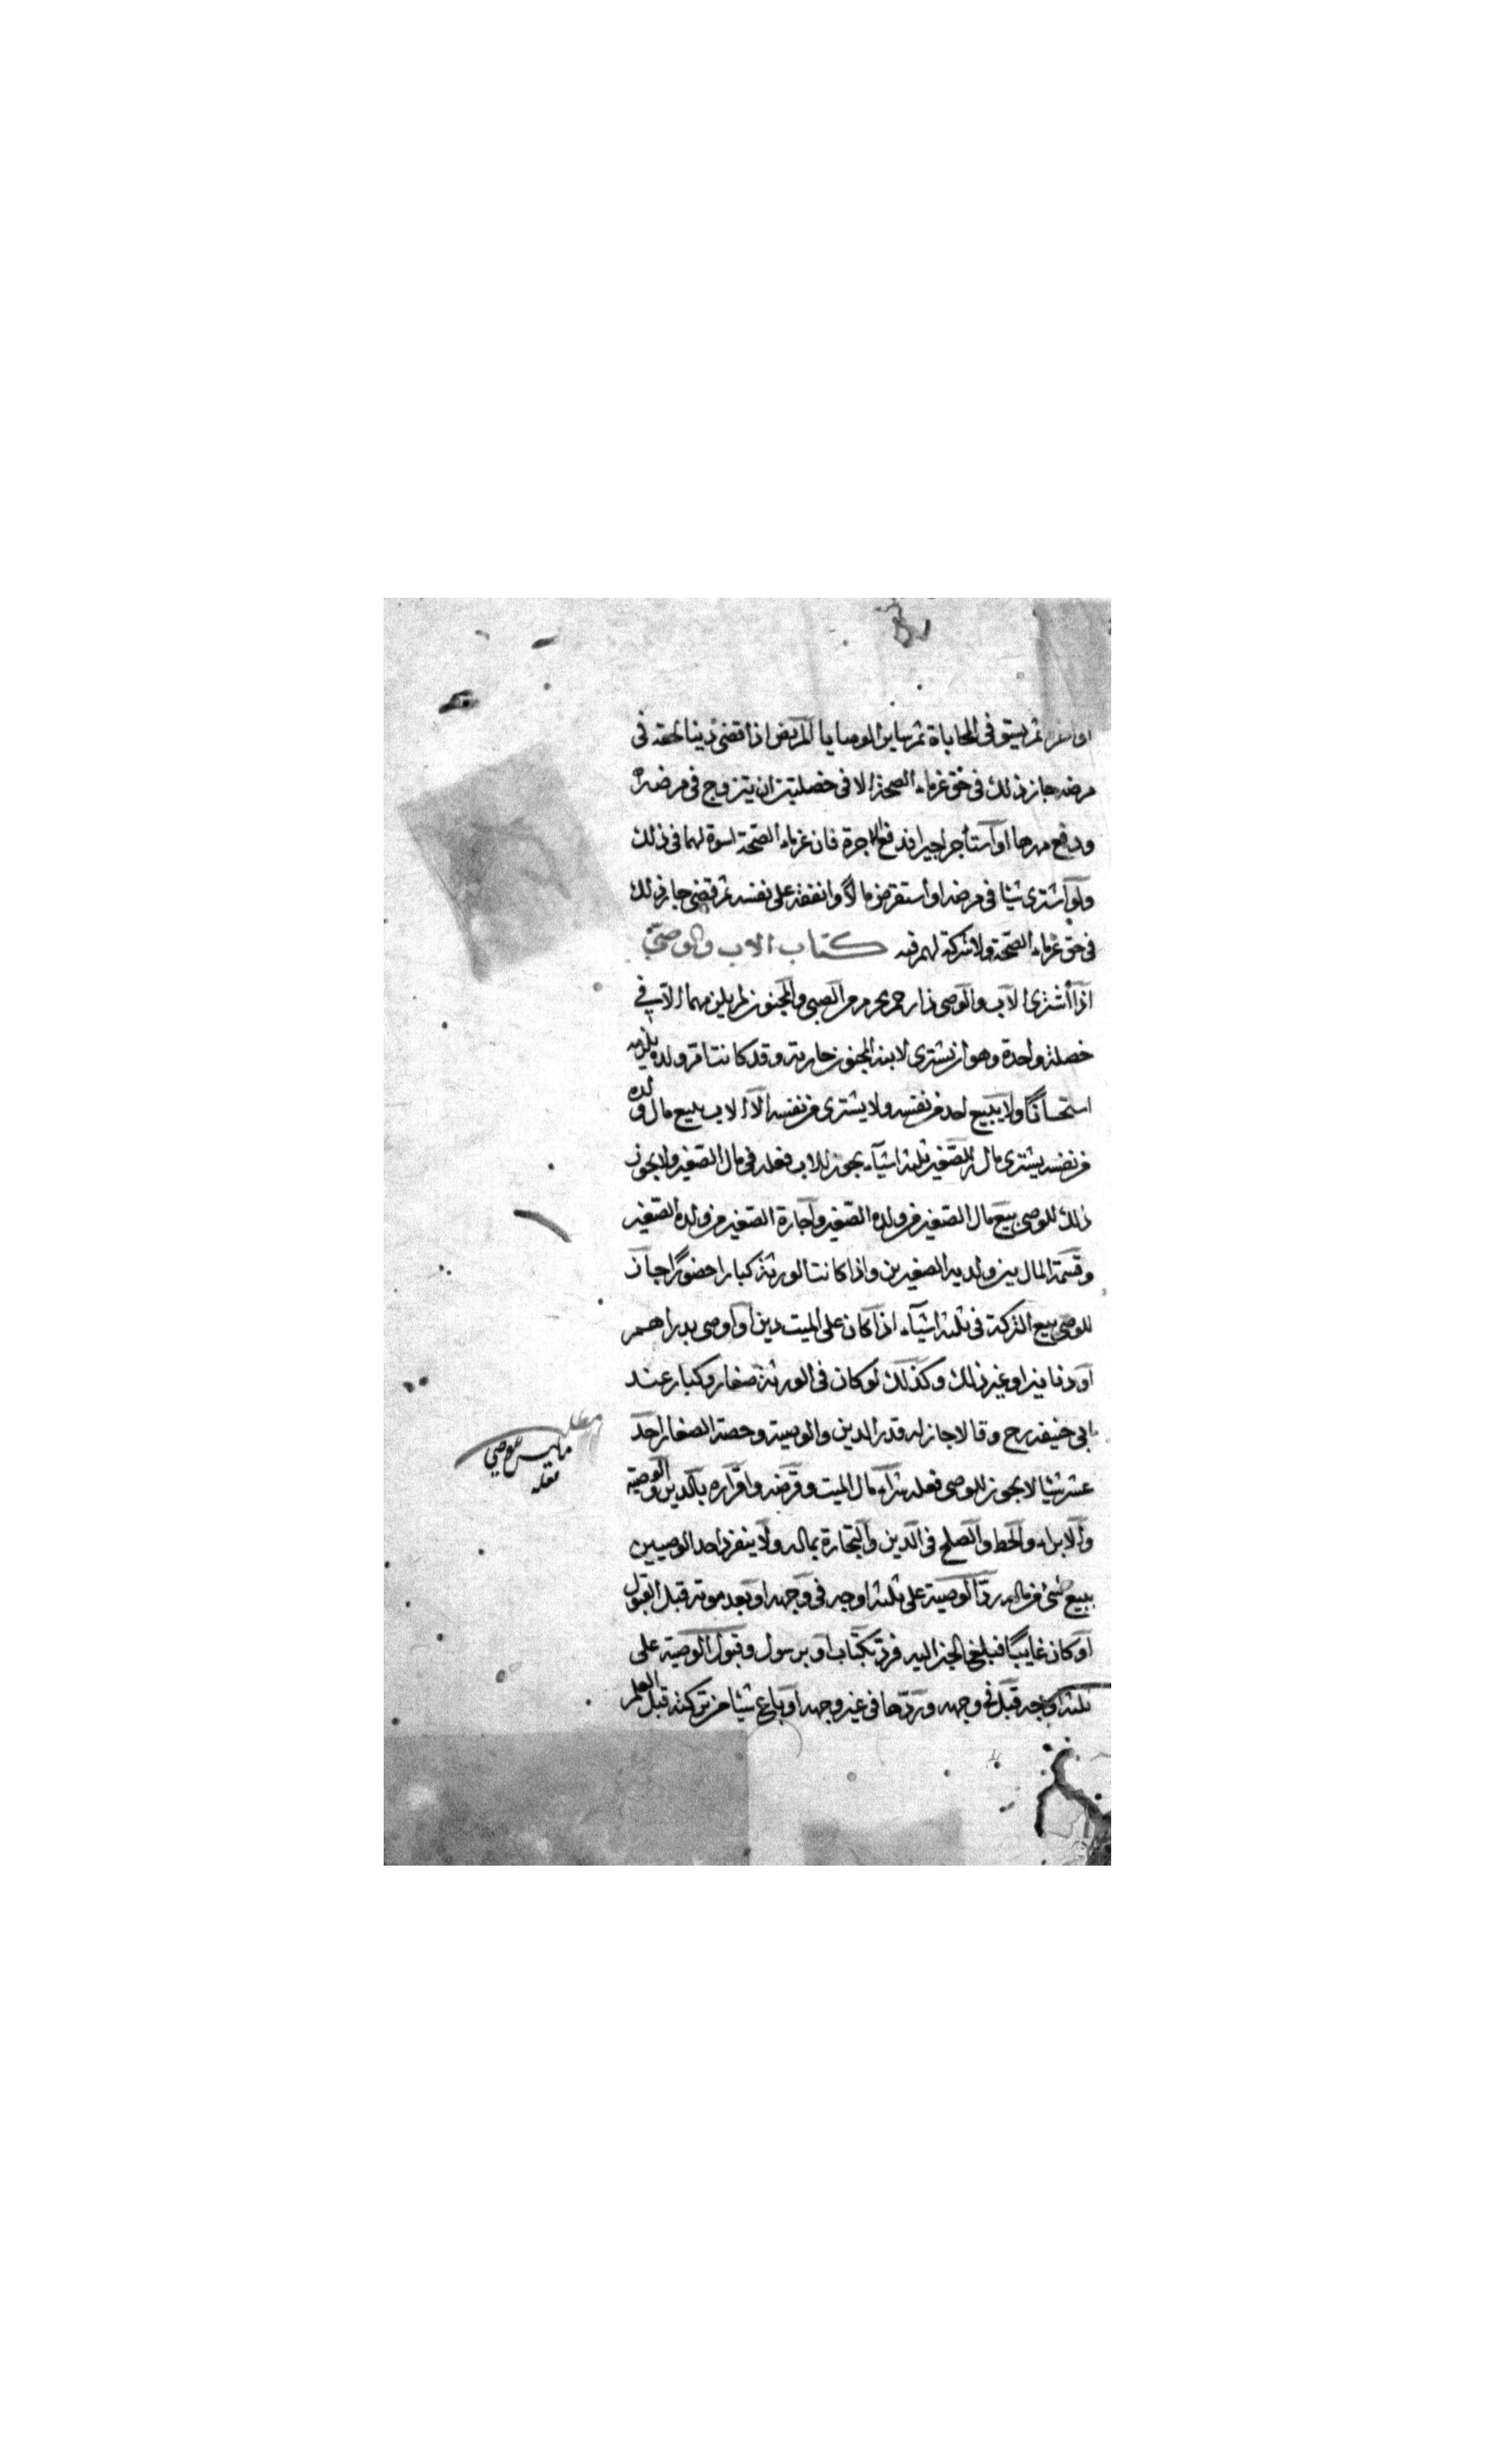 او اخر ثم يستوفى المحاباة ثم ساير الوصايا المريض اذا قضى دينا لحقه فى
مرضه جاز ذلك فى حق غرماء الصحة الا فى خصلتين ان يتزوج فى مرضه
ودفع مهرها او استأجر اجيرا فدفع الاجرة فان غرماء الصحة اسوة لهما فى ذلك
ولو اشترى شيئا فى مرضه او استقرض مالا وانفقه على نفسه ثم قضى جاز ذلك
فى حق غرماء الصحة ولا شركة لهم فيه كتاب الاب والوصى
اذا اشترى الاب والوصى ذا رحم محرم من الصبى والمجنون لم يلزمهما الا الاب فى
خصلة واحدة وهو ان يشترى لابنه المجنون جارية وقد كانت ام ولده يلزمه
استحسانا ولا يبيع احد من نفسه ولا يشترى من نفسه الا الاب يبيع مال ولده
من نفسه يشترى مال الصغير ثلثة اشياء يجوز للاب فعله فى مال الصغير ولا يجوز
ذلك للوصى بيع مال الصغير من ولده الصغير واجارة الصغير من ولده الصغير
وقسمة المال بين ولديه الصغيرين واذا كانت الورثة كبارا حضورا جاز
للوصى بيع التركة فى ثلثة اشياء اذا كان على الميت دين او اوصى بدراهم
او دنانير او غير ذلك وكذلك لو كان فى الورثة صغار وكبار عند
ابى حنيفه رح وقالا جاز له قدر الدين والوصية وحصة الصغار احد
عشر شيئا لا يجوز للوصى فعله شراء مال الميت وقرضه واقراره بالدين والوصية
والابراء والحط والصلح فى الدين والتجارة بماله ولا ينفرد احد الوصيين
ببيع شئ من ماله رد الوصية على ثلثة اوجه فى وجهه او بعد موته قبل القبول
او كان غايبا فبلغ الخبر اليه فرد بكتاب او برسول وقبول الوصية على
ثلثة اوجه قبل فى وجهه وردها فى غير وجهه او باع شيئا من تركته قبل العلم
للوصي
فعله